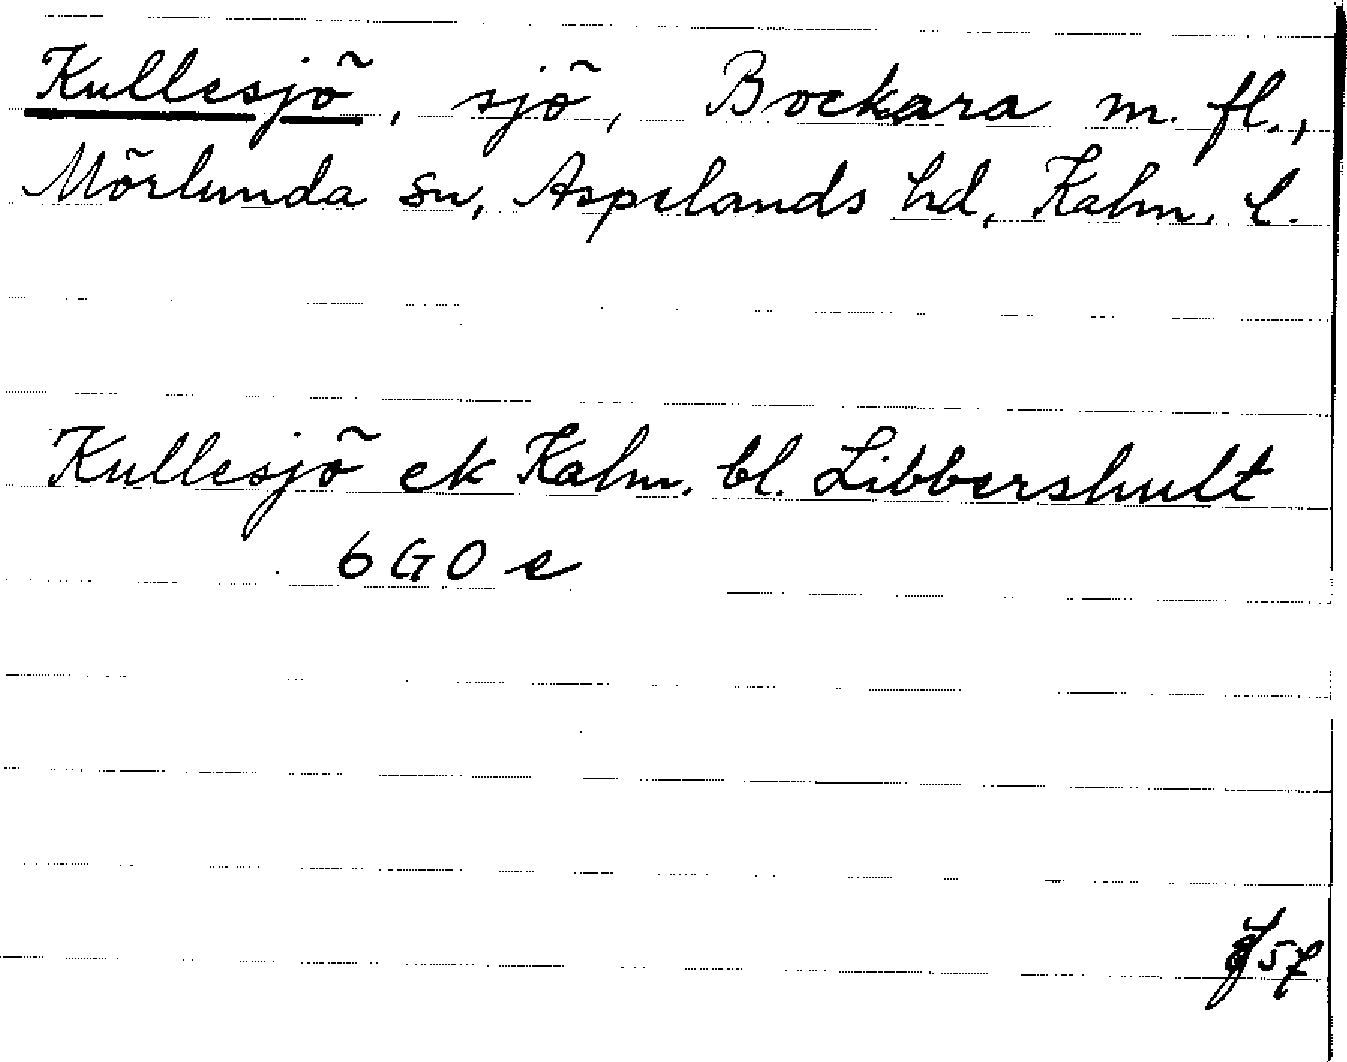 Kullesjö, sjö, Bockara m. fl.,
Mörlunda sn, Aspelands hd, Kalm. l.
Kullesjö ek Kalm. bl. Libbershult
6 G 0 e
57